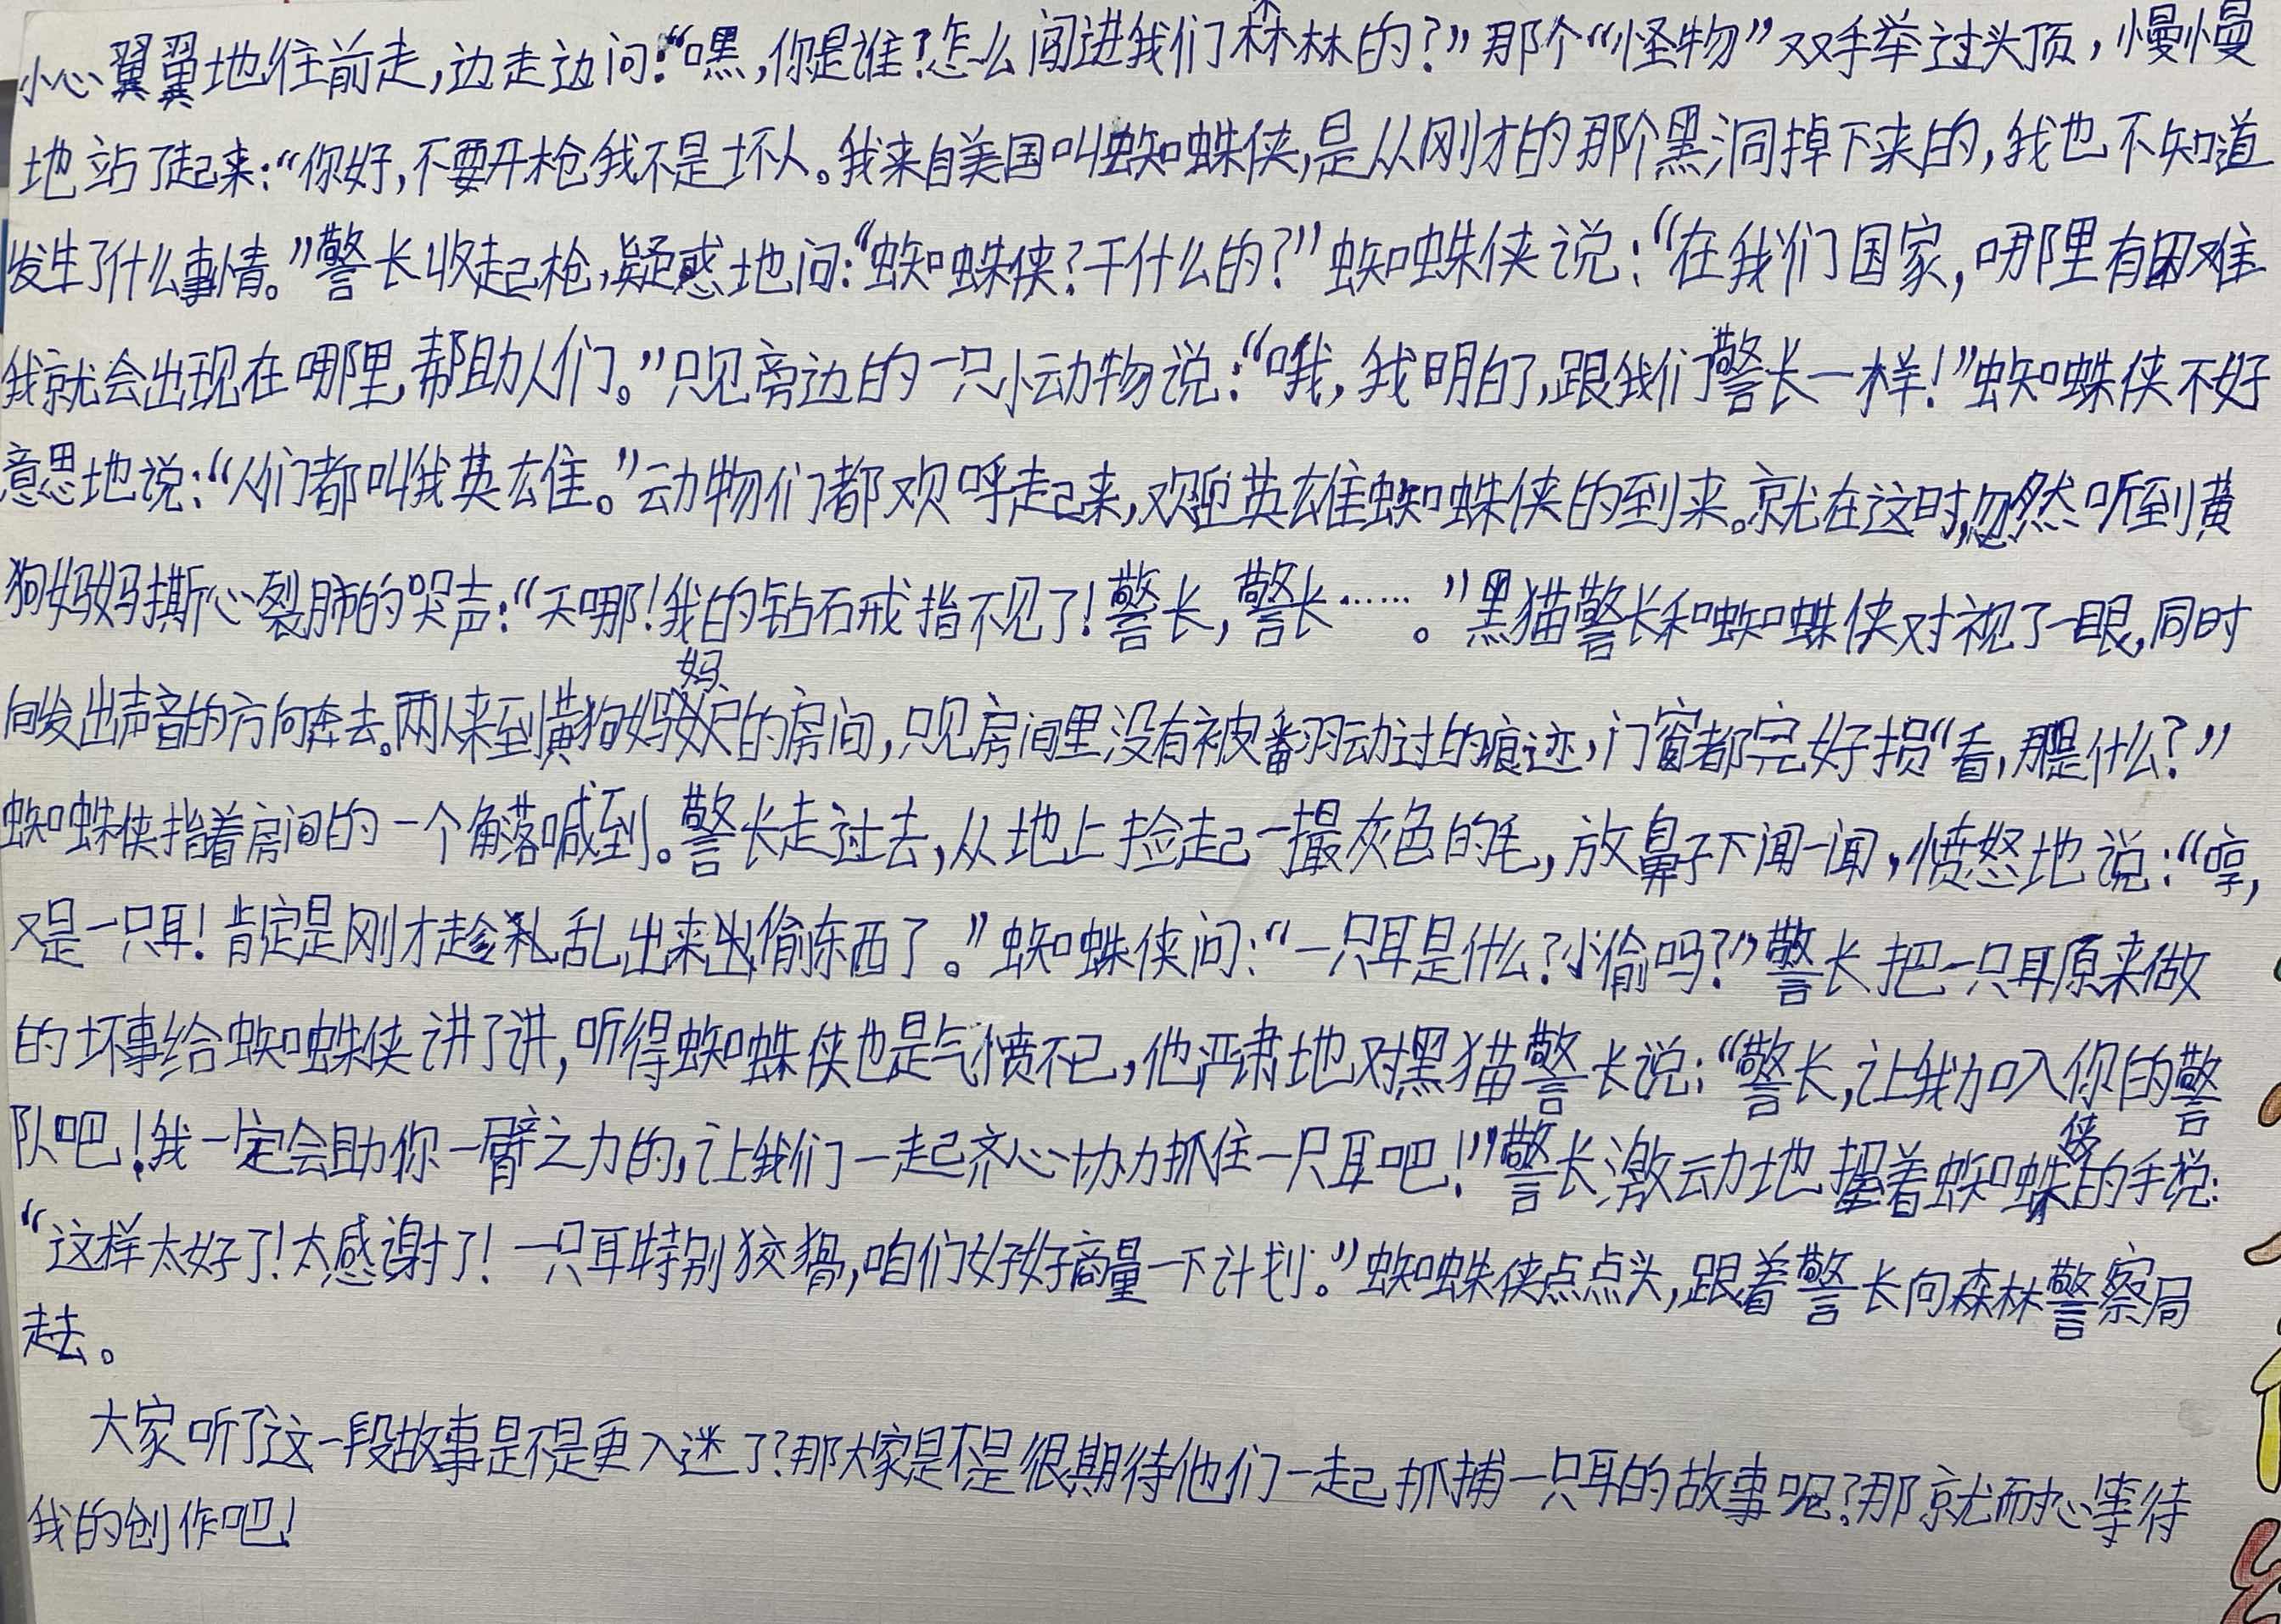 小心翼翼地往前走,边走边问:“嘿,你是谁?怎么闯进我们森林的?”那个“怪物”双手举过头顶,慢慢
地站了起来:“你好,不要开枪我不是坏人。我来自美国叫蜘蛛侠,是从刚才的那个黑洞掉下来的,我也不知道
发生了什么事情。”警长收起枪,疑惑地问:“蜘蛛侠?干什么的?”蜘蛛侠说:“在我们国家,哪里有困难
我就会出现在哪里,帮助人们。”只见旁边的一只小动物说:“哦,我明白了,跟我们警长一样!”蜘蛛侠不好
意思地说:“人们都叫我英雄。”动物们都欢呼起来,欢迎英雄蜘蛛侠的到来。就在这时,忽然听到黄
狗妈妈撕心裂肺的哭声:“天哪!我的钻石戒指不见了!警长,警长……。”黑猫警长和蜘蛛侠对视了一眼,同时
向发出声音的方向奔去。两人来到黄狗妈妈的房间,只见房间里没有被翻动过的痕迹,门窗都完好损“看,那是什么?”
蜘蛛侠指着房间的一个角落喊到。警长走过去,从地上捡起一撮灰色的毛,放鼻子下闻一闻,愤怒地说:“哼,
又是一只耳!肯定是刚才趁乱出来出偷东西了。”蜘蛛侠问:“一只耳是什么?小偷吗?”警长把一只耳原来做
的坏事给蜘蛛侠讲了讲,听得蜘蛛侠也是气愤不已,他严肃地对黑猫警长说:“警长,让我加入你的警
队吧!我一定会助你一臂之力的,让我们一起齐心协力抓住一只耳吧!”警长激动地握着蜘蛛侠的手说:
“这样太好了!太感谢了!一只耳特别狡猾,咱们好好商量一下计划。”蜘蛛侠点点头,跟着警长向森林警察局
走去。
大家听了这一段故事是不是更入迷了?那大家是不是很期待他们一起抓捕一只耳的故事呢?那就耐心等待
我的创作吧!